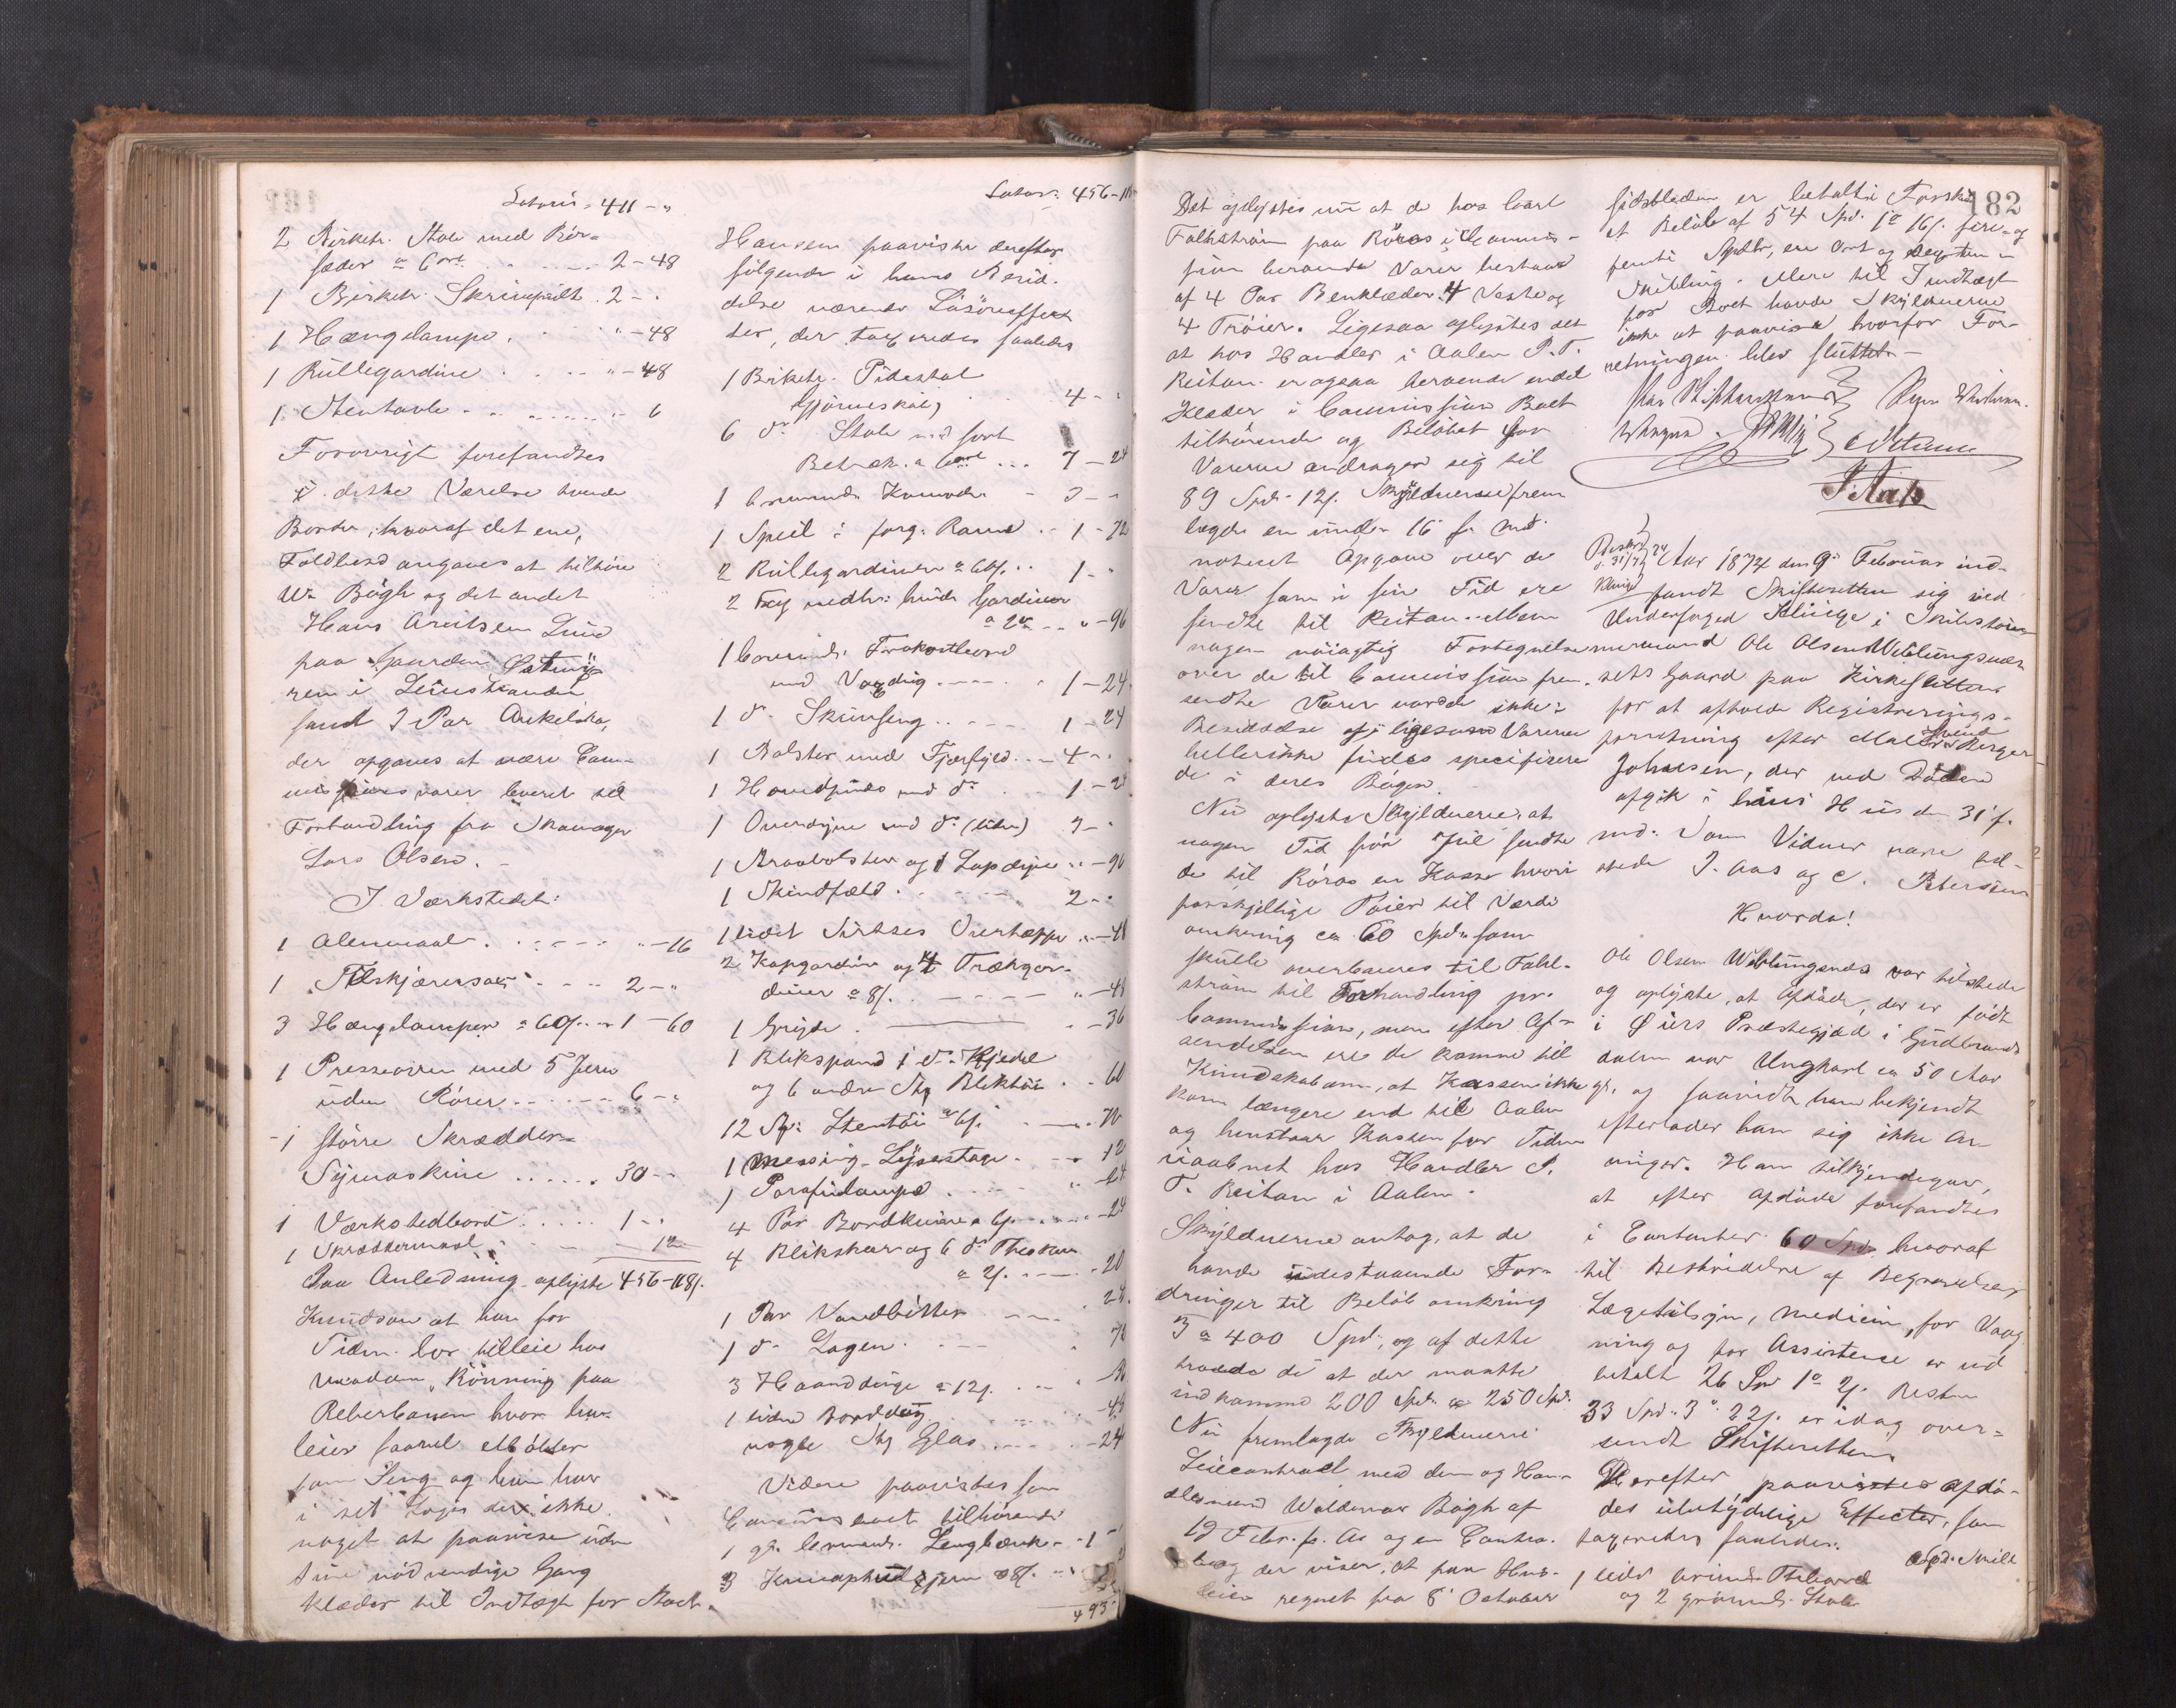 Lateris 411 - "
2 Birketr. Stole med Rör-
sæder a 6 ort . . . 2 - 48
1 Birketr. Skrivepult . 2 - "
1 Hængelampe . . " - 48
1 Rullegardine . . . " - 48
1 Stentavle . . . . . " - 6
Forövrigt forefandtes
i dette Værelse tvende
Borde, hvoraf det ene,
Foldbord angaves at tilhöre
W. Bögh og det andet
Hans Arntsen Lund
paa Gaarden
ren i Leinstranden
samt 3 Par Ankelsko,
der opgaves at være Com-
missions varer leveret til
Forhandling fra Skomager
Lars Olsen. -
I Værkstedet:
1 Alenmaal . . . . . " - 16
1 Tilskjærersax . . . 2 - "
3 Hængelamper a 60 s. . 1 - 60
1 Presseovn med 5 Jern
uden Rörer . . . . . 6 - "
1 större Skrædder-
Symaskine . . . . . 30 - "
1 Værkstedbord . . . . 1 - "
1 Skræddermaal . . . 12
Paa Anledning oplyste 456 - 118 s.
Knudsen at han for
Tiden bor tilleie hos
Madam Rönning paa
Reberbanen hvor han
leier saavel Möbler
som Seng og han har
i sit Logis der ikke
noget at paavise uden
sine nödvendige Gang
klæder til Indtægt for Boet.
Lateris 456 - 118
Hansen paaviste derefter
fölgende i hans Besid-
delse værende Lösöreeffec
ter, der taxeredes saaledes
1 Birketr. Pidestal
Hjörneskab . . 4 - "
6 do Stole med sort
Betræk a 6 ort . . . 7 - 24
1 brunmalt Komode - 3 - "
1 Speil i forg. Ramme . . 1 - 72
2 Rullegardiner a 60 s. . . 1 - "
2 Fag nedtr. hvide Gardiner
" - 96
1 brunmalt Frokostbord
med Voxdug . . . . 1 - 24
1 do Skuvseng . . . . 1 - 24
1 Bolster med Fjærfyld . . 4 - "
1 Hovedpude med do . 1 - 24
1 Overdyne med do (liden) 3 - "
1 Straabolster og 1 Lapdyne . . - 96
1 Skindfæld . . . . . 2 - "
1 lidet Sirtses Overtæppe . . - 48
2 Kapgardiner og 4 Trækgar-
diner a 8 s. . . . . " - 48
1 Gryde . . " - 36
1 Blikspand 1 do Kjedel
og 6 andre Stk Bliktöi . . - 60
12 St. Stentöi a 6 s. . . - 72
1 Messing-Lysestage . . . 12
1 Parafinlampe . . . " - 24
4 Par Bordknive a 6 s. . . . - 24
4 Blikskeer og 6 do Theskeer
a 2 s. . . . - 20
1 Par Vandbötter . . . . 24
1 do Lagen . . . . 72
3 Haandduge a 12 s. . . . 36
1 liden Borddug . . . - 48
nogle Stk Glas . . . . - 24
Videre paavistes som
Concursboet tilhörende
1 gl. brunmalt Længbænk . - 1 -
3 Knaphulsjern a 8 s.
493
182
Det oplystes nu at de hos Carl
Falkström paa Röros i Commis-
sion beroende Varer bestaar
af 4 Par Benklæder, 4 Veste og
4 Tröier. Ligesaa oplystes det
at hos Handler i Aalen P. T.
Reitan er ogsaa beroende endel
Klæder i Commission Boet
tilhörende og Belöbet for
Varerne andrager sig til
89 Spd. 12 s. Skyldnerne frem
lagde en under 16 f. Md.
noteret Opgave over de
Varer som i sin Tid ere
sendte til Reitan. Men
nogen nöiagtig Fortegnelse
over de til Commission frem-
sendte Varer varde ikke i
Besiddelse af, ligesom Varerne
hellerikke findes specificere
de i deres Böger.
Nu oplyste Skyldnerne, at
nogen Tid för Jul sendte
de til Röros en Kasse hvori
forskjellige Töier til Værdi
omkring ca. 60 Spd. som
skulle overleveres til Falk-
ström til Forhandling pr.
Commission, men efter Af-
sendelsen ere de komne til
Kundskab om, at Kassen ikke
kom længere end til Aalen
og henstaar Kassen for Tiden
uaabnet hos Handler P.
T. Reitan i Aalen.
Skyldnerne antog, at de
havde udestaaende For-
dringer til Belöb omkring
3 a 400 Spd., og af dette
troede de at der maatte
indkomme 200 Spd. a 250 Spd.
Nu fremlagde Skyldnerne
Leiecontract med dem og Han-
delsmand Waldemar Bögh af
19 Febr. f. A. og en Contra-
bog der viser, at paa Hus-
leien regnet fra 8 October
sidstleden er betalt i Forskud
et Belöb af 54 Spd. 1 o 16 s. fire- og
femti Spdlr, een Ort og sexten
Skilling. Mere til Indtægt
for Boet havde Skyldnerne
ikke at paavise hvorfor For-
retningen blev sluttet. -
J. Aas
Aar 1874 den 9 Februar ind-
fandt Skifteretten sig ved
Underfoged Klüwge i Skibstöm
mermand Ole Olsen Viblungsnæs
sets Gaard paa Kirkesletten
for at afholde Registrerings-
forretning efter Maler Svend Berger
Johnsen, der ved Döden
afgik i hans Hus den 31 f.
Md. Som Vidner vare til-
stede J. Aas og C. Petersen
Hvorda!
Ole Olsen Viblungsnæs var tilstede
og oplyste, at Afdöde, der er födt
i Öiers Præstegjæld i Gudbrands
dalen var Ungkarl ca 50 Aar
gl. og saavidt ham bekjendt
efterlader han sig ikke Ar-
vinger. Han tilkjendegav,
at efter Afdöde forefandtes
i Contanter 60 Spd. hvoraf
til Bestridelse af Begravelse,
Lægetilsyn, Medicin, for Vaag
ning og for Assistence er ud
betalt 26 Spd 1 o 2 s. Resten
33 Spd. 3 o 22 s. er idag over-
sendt Skifteretten.
Derefter paavistes Afdö-
des ubetydelige Effecter, som
taxeredes saaledes:
Spd. Skill
1 liden brunm. Theboard
og 2 grönmalt. Stole